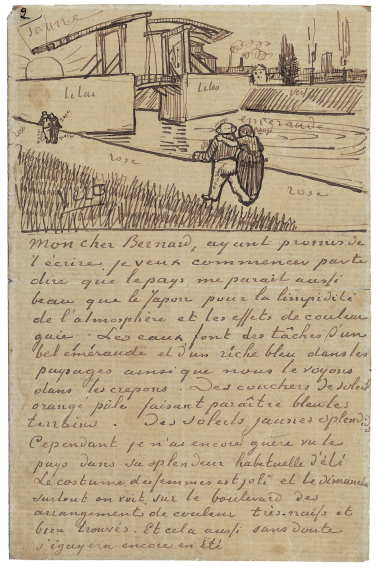 2
jaune
lilas
lilas
vert
emeraude
rose
rose
rose
Mon cher Bernard, ayant promis de
t'écrire je veux commencer par te
dire que le pays me parait aussi
beau que le Japon pour la limpidité
de l'atmosphère et les effets de couleur
gaie Les eaux font des tâches d'un
bel eméraude et d'un riche bleu dans les
paysages ainsi que nous le voyons
dans les crepons. Des couchers de soleil
orangé pâle faisant paraître bleu les
terrains. Des soleils jaunes splendides
Cependant je n'ai encore guère vu le
pays dans sa splendeur habituelle d'été
Le costume des femmes est joli et le dimanche
surtout on voit sur le boulevard des
arrangements de couleur très naïfs et
bien trouvés. Et cela aussi sans doute
s'égayera encore en été